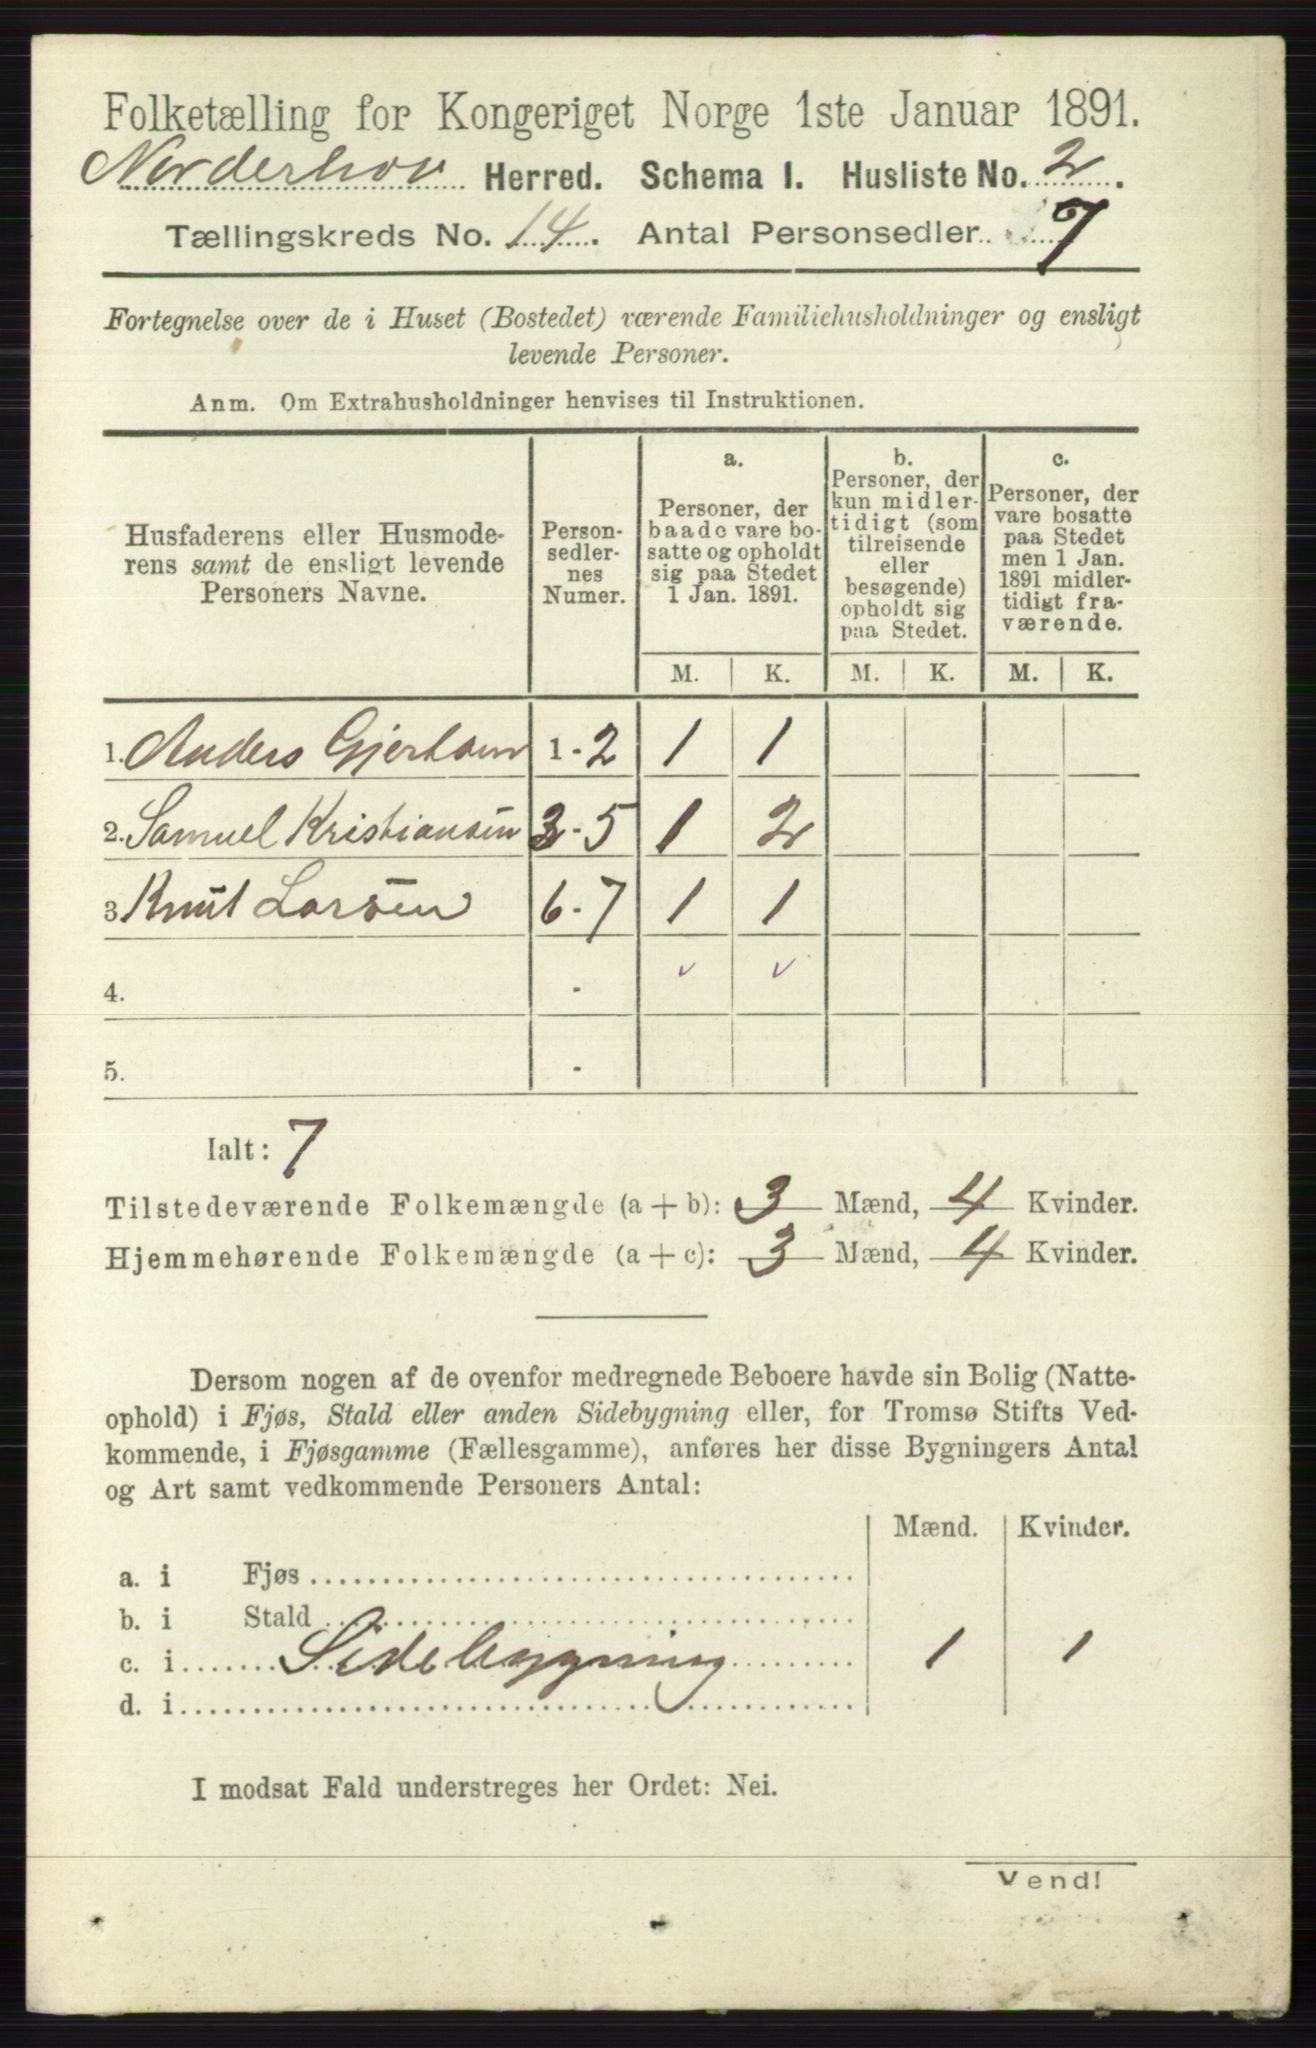 Folketælling for Kongeriget Norge 1ste Januar 1891.
Norderhov Herred. Schema I. Husliste No. 2.
Tællingskreds No. 14. Antal Personsedler 7
Fortegnelse over de i Huset (Bostedet) værende Familiehusholdninger og ensligt
levende Personer.
Anm. Om Extrahusholdninger henvises til Instruktionen.
Husfaderens eller Husmode-
rens samt de ensligt levende
Personers Navne.
Person-
sedler-
nes
Numer.
a.
Personer, der
baade vare bo-
satte og opholdt
sig paa Stedet
1 Jan. 1891.
b.
Personer, der
kun midler-
tidigt (som
tilreisende
eller
besøgende)
opholdt sig
paa Stedet.
c.
Personer, der
vare bosatte
paa Stedet
men 1 Jan.
1891 midler-
tidigt fra-
værende.
M. K. M. K. M. K.
1. Anders Gjertsen 1-2 1 1
2. Samuel Kristiansen 3-5 1 2
3 Knut Larsen 6-7 1 1
4. -
5. -
Ialt: 7
Tilstedeværende Folkemængde (a + b): 3 Mænd, 4 Kvinder.
Hjemmehørende Folkemængde (a + c): 3 Mænd, 4 Kvinder.
Dersom nogen af de ovenfor medregnede Beboere havde sin Bolig (Natte-
ophold) i Fjøs, Stald eller anden Sidebygning eller, for Tromsø Stifts Ved-
kommende, i Fjøsgamme (Fællesgamme), anføres her disse Bygningers Antal
og Art samt vedkommende Personers Antal:
Mænd. Kvinder.
a. i Fjøs
b. i Stald
c. i Sidebygning 1 1
d. i
I modsat Fald understreges her Ordet: Nei.
Vend!